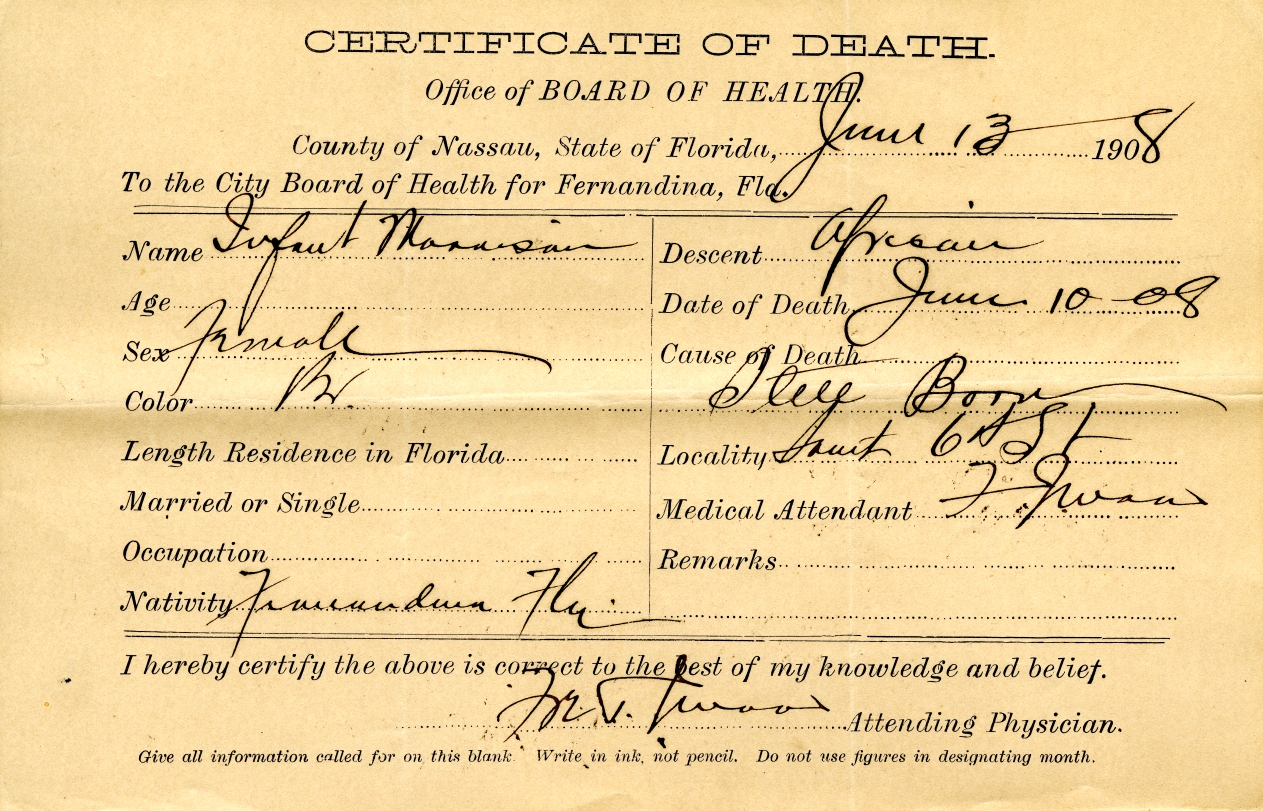 CERTIFICATE OF DEATH.
Office of BOARD OF HEALTH.
County of Nassau, State of Florida, June 13 1908
To the City Board of Health for Fernandina, Fla.
Name Infant Morrison
Age
Sex Female
Color
Length Residence in Florida
Married or Single
Occupation
Nativity Fernandina Fla.
Descent African
Date of Death June 10-08
Cause of Death
Still Born
Locality South 6th St
Medical Attendant
Remarks
I hereby certify the above is correct to the best of my knowledge and belief.
Attending Physician.
Give all information called for on this blank. Write in ink, not pencil. Do not use figures in designating month.